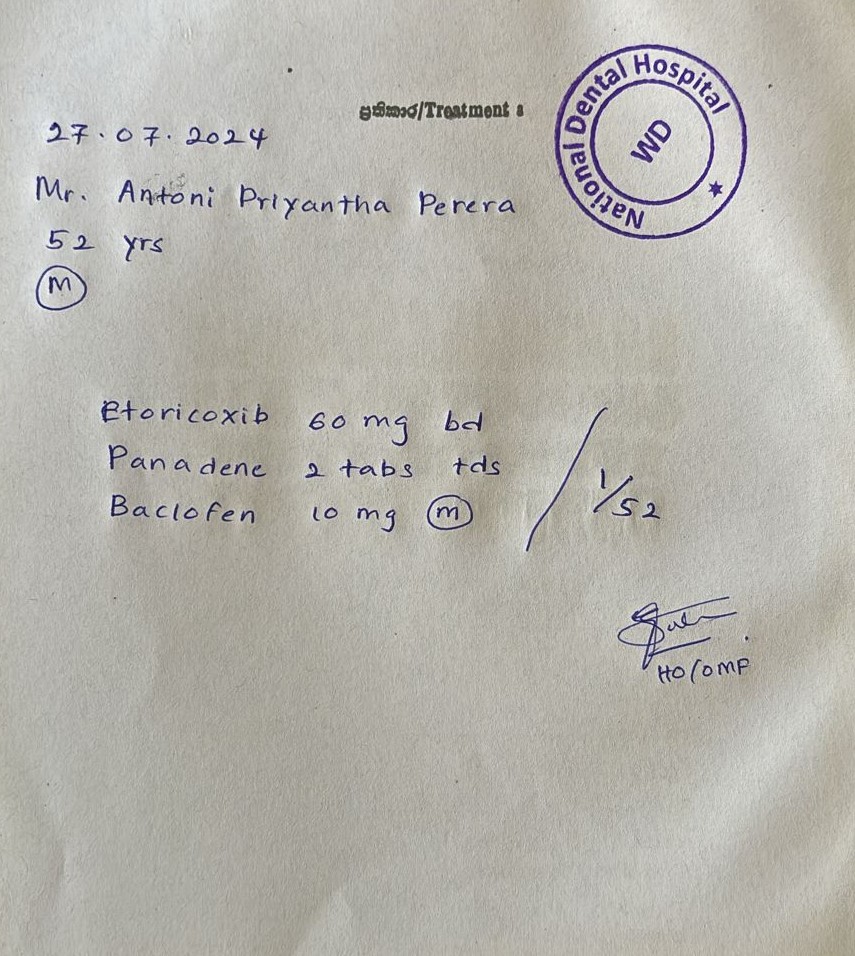 ප්‍රතිකාර/Treatment :
National Dental Hospital
WD
27.07.2024
Mr. Antoni Priyantha Perera
52 yrs
M
Etoricoxib 60 mg bd
Panadene 2 tabs tds
Baclofen 10 mg m
1/52
HO/OMF